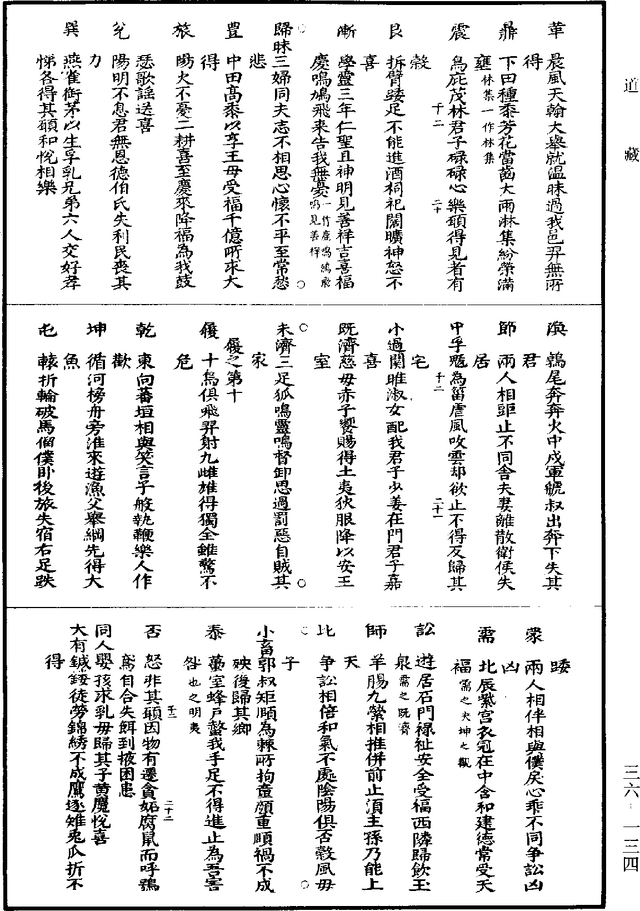 道藏
革　晨風天翰大舉就溫昧過我邑羿無所
得
鼎　下田種黍芳花當齒大雨淋集紛榮滿
甕林集一作林集
震　烏庇茂林君子碌碌心樂頭得見者有
穀
千二　二十
艮　拆臂踒足不能進酒祠祀闊曠神怒不
喜
漸　學靈三年仁聖且神明見善祥吉喜福
慶鳴鳩飛來告我無憂
歸昧三婦同夫志不相思心懷不平至常愁
悲
豐　中田高黍以享王母受福千億所求大
得
旅　陽火不憂二耕喜至慶來降福為我鼓
瑟歌謡送喜
兊　陽明不息君無恩德伯氏失利民喪其
力
巽　燕雀銜茅以生孚乳兄弟六人交好孝
悌各得其願和悅相樂
渙　鶉尾奔奔火中成軍虢叔出奔下失其
君
節　兩人相距止不同舍夫妻離散衛侯失
居
中孚　為笛虐風吹雲却欲止不得反歸其
宅
千二　二十一
小過關雎淑女配我君子少姜在門君子嘉
喜
既濟慈母赤子饗賜得士夷狄服降以安王
室
未濟三足狐鳴靈鳴督卸思過罰惡自賊其
家
履之第十
履　十烏俱飛羿射九雌雄得獨全雖驚不
危
乾　東向蕃垣相與笑言子般執鞭樂人作
歡
坤　循河榜舟旁淮來遊漁父舉網先得大
魚
屯　轅折輪破馬倒僕卧後旅失宿右足跌
踒
蒙　兩人相伴相與僕戾心乖不同争訟凶
凶
需　北辰紫宮衣冠在中含和建德常受天
福需之大坤之觀
訟　遊居石門祿祉安全受福西隣歸飲玉
泉需之既濟
師　羊腸九縈相推併前止須王孫乃能上
天
比　争訟相倍和氣不處陰陽俱否穀風毋
子
小畜郭叔矩頤為棘所拘童顏重順禍不成
殃後歸其鄉
泰　蠆室蜂戸螫我手足不得進止為吾害
咎也之明夷
否　怒非其願因物有遷貪妬腐鼠而呼鵶
鳶自合失餌到掖困患
千三　二十二
同人嬰孩求乳母歸其子黄麑悅喜
大有鍼鏤徒勞錦綉不成鷹逐雉兎爪折不
得
三六·一三四